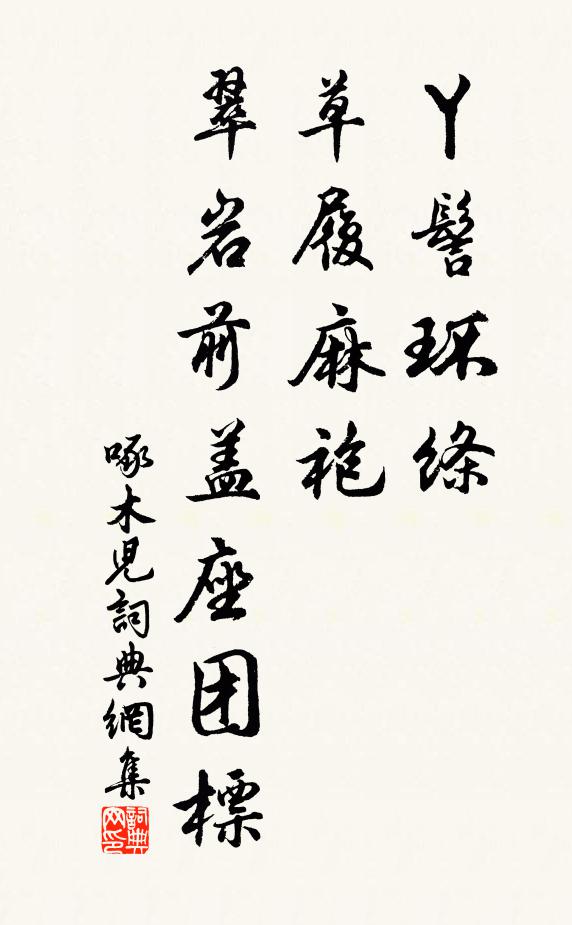 丫髻环绦
草履麻袍
翠岩前盖座团標
啄木児詞典網集
詞典网印